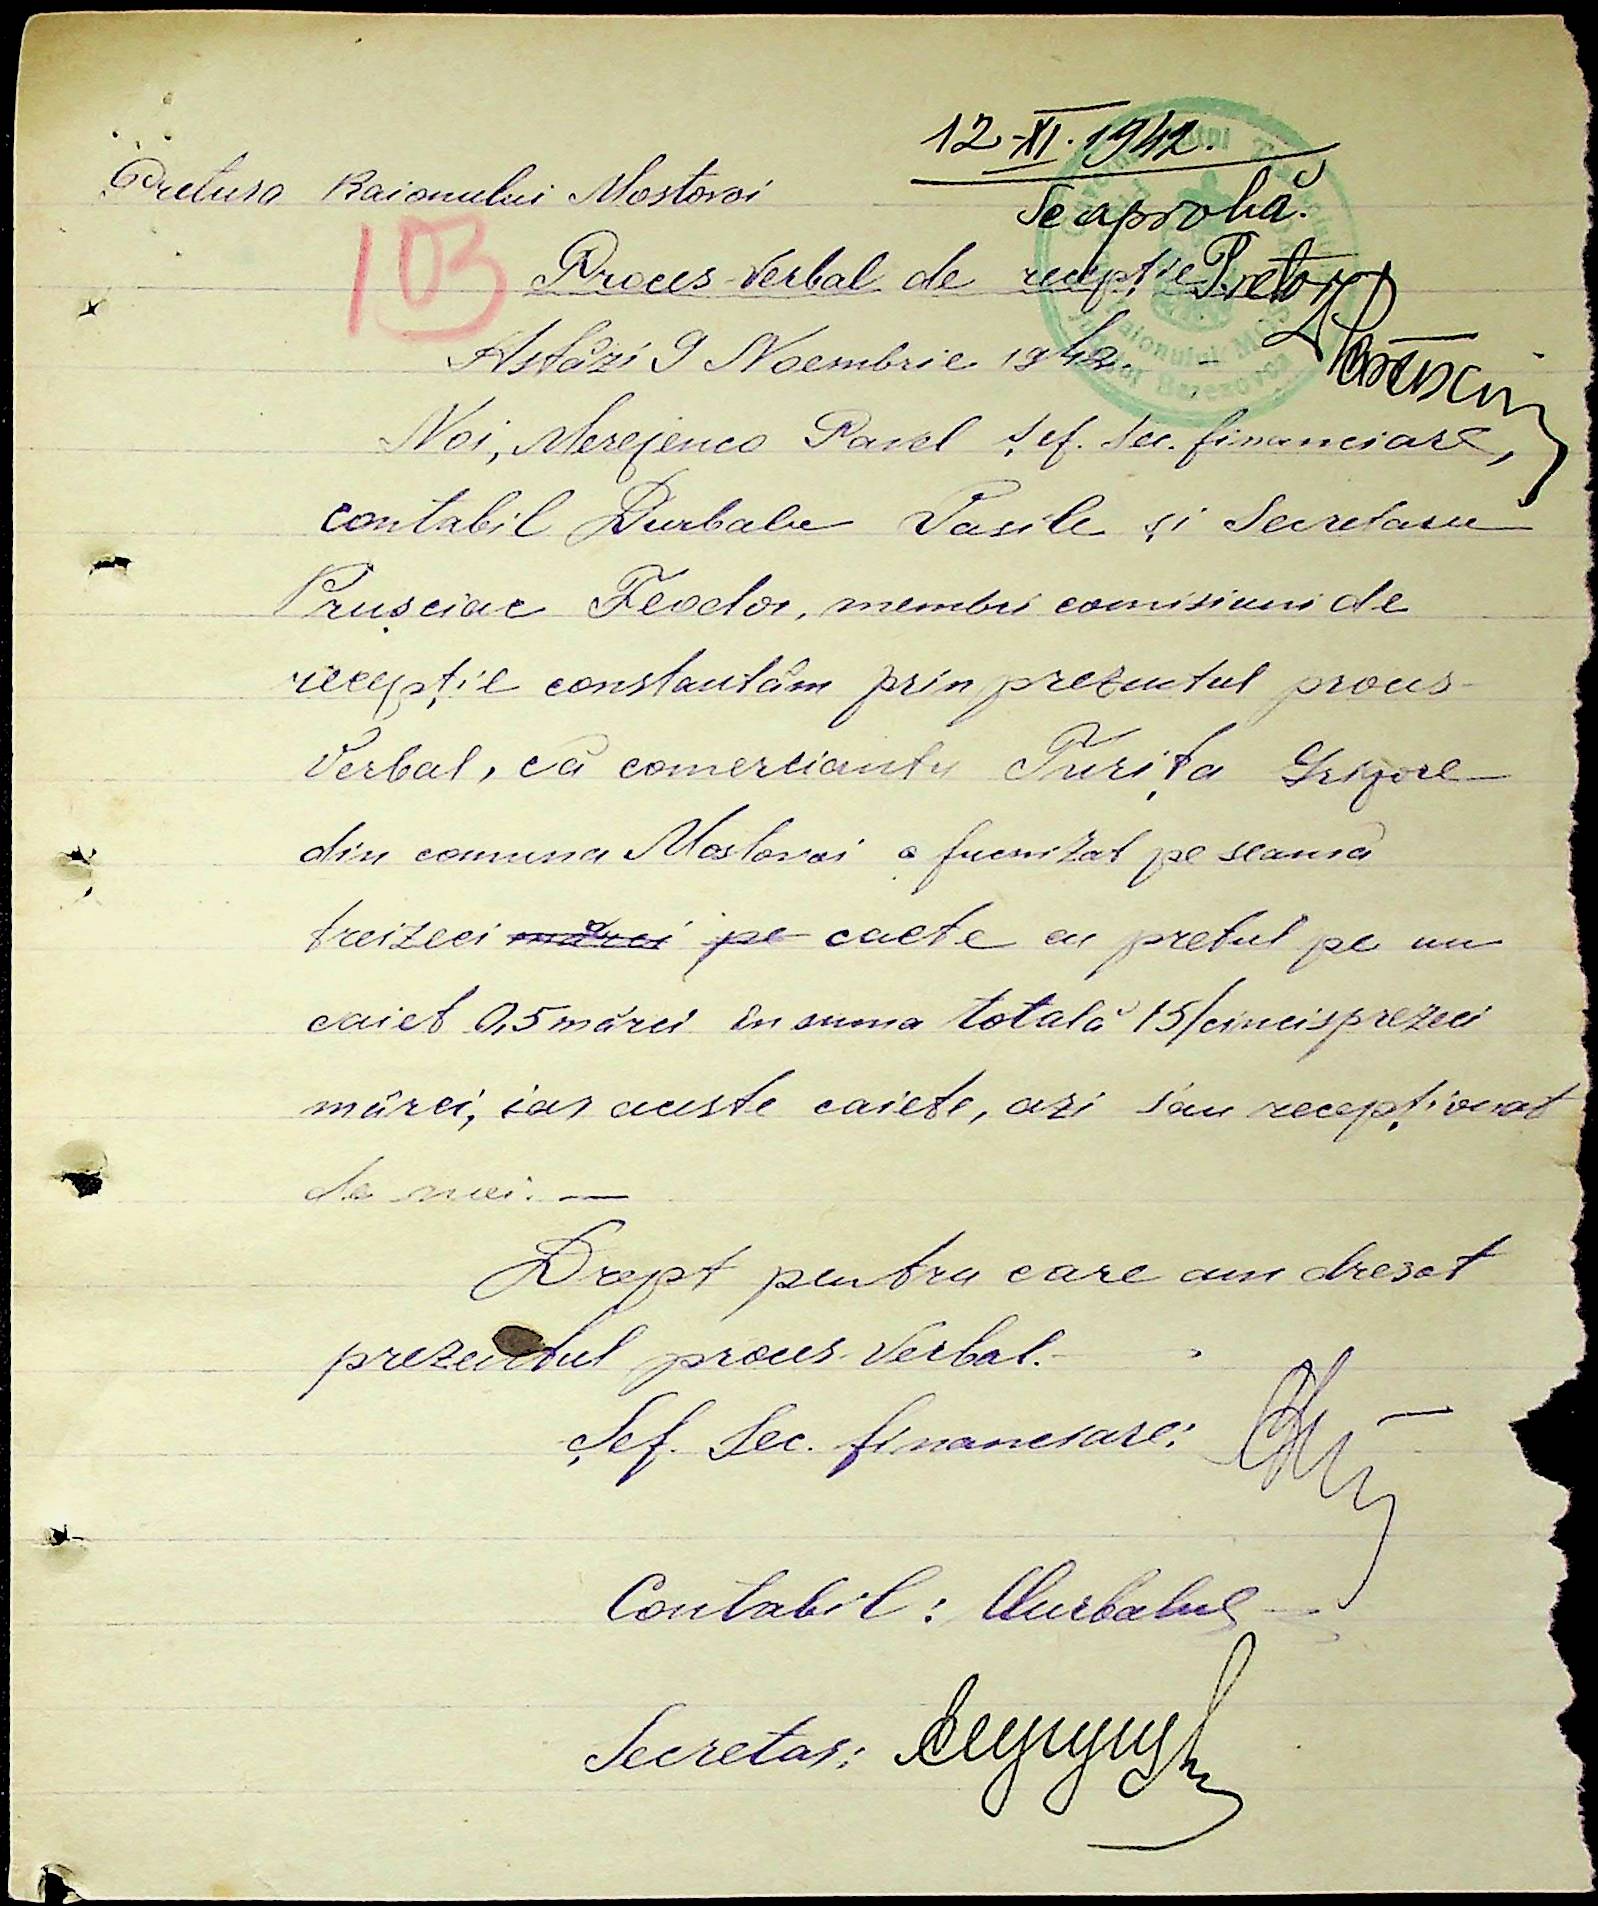 12-XI.1942.
Pretura Raionului Mostovoi
Se aprobă.
103
Proces-Verbal de recepție
Pretor,
Astăzi 9 Noembrie 1942.
Noi, Merejenco Pavel șef. sec. financiare,
contabil Durbalu Vasile și Secretaru
Prușciac Feodor, membri comisiuni de
recepție constantăm prin prezentul proces-
Verbal, că comerciantu Turița Grigore
din comuna Mostovoi a furnizat pe seamă
treizeci mărci pe caete cu prețul pe un
caiet 0,5 mărci în suma totală 15/cincisprezeci
mărci, iar aceste caiete, azi sau recepționat
de noi. —
Drept pentru care am dresat
prezentul proces-Verbal.-
Șef. Sec. financiare:
Contabil: Durbalu
Secretar: